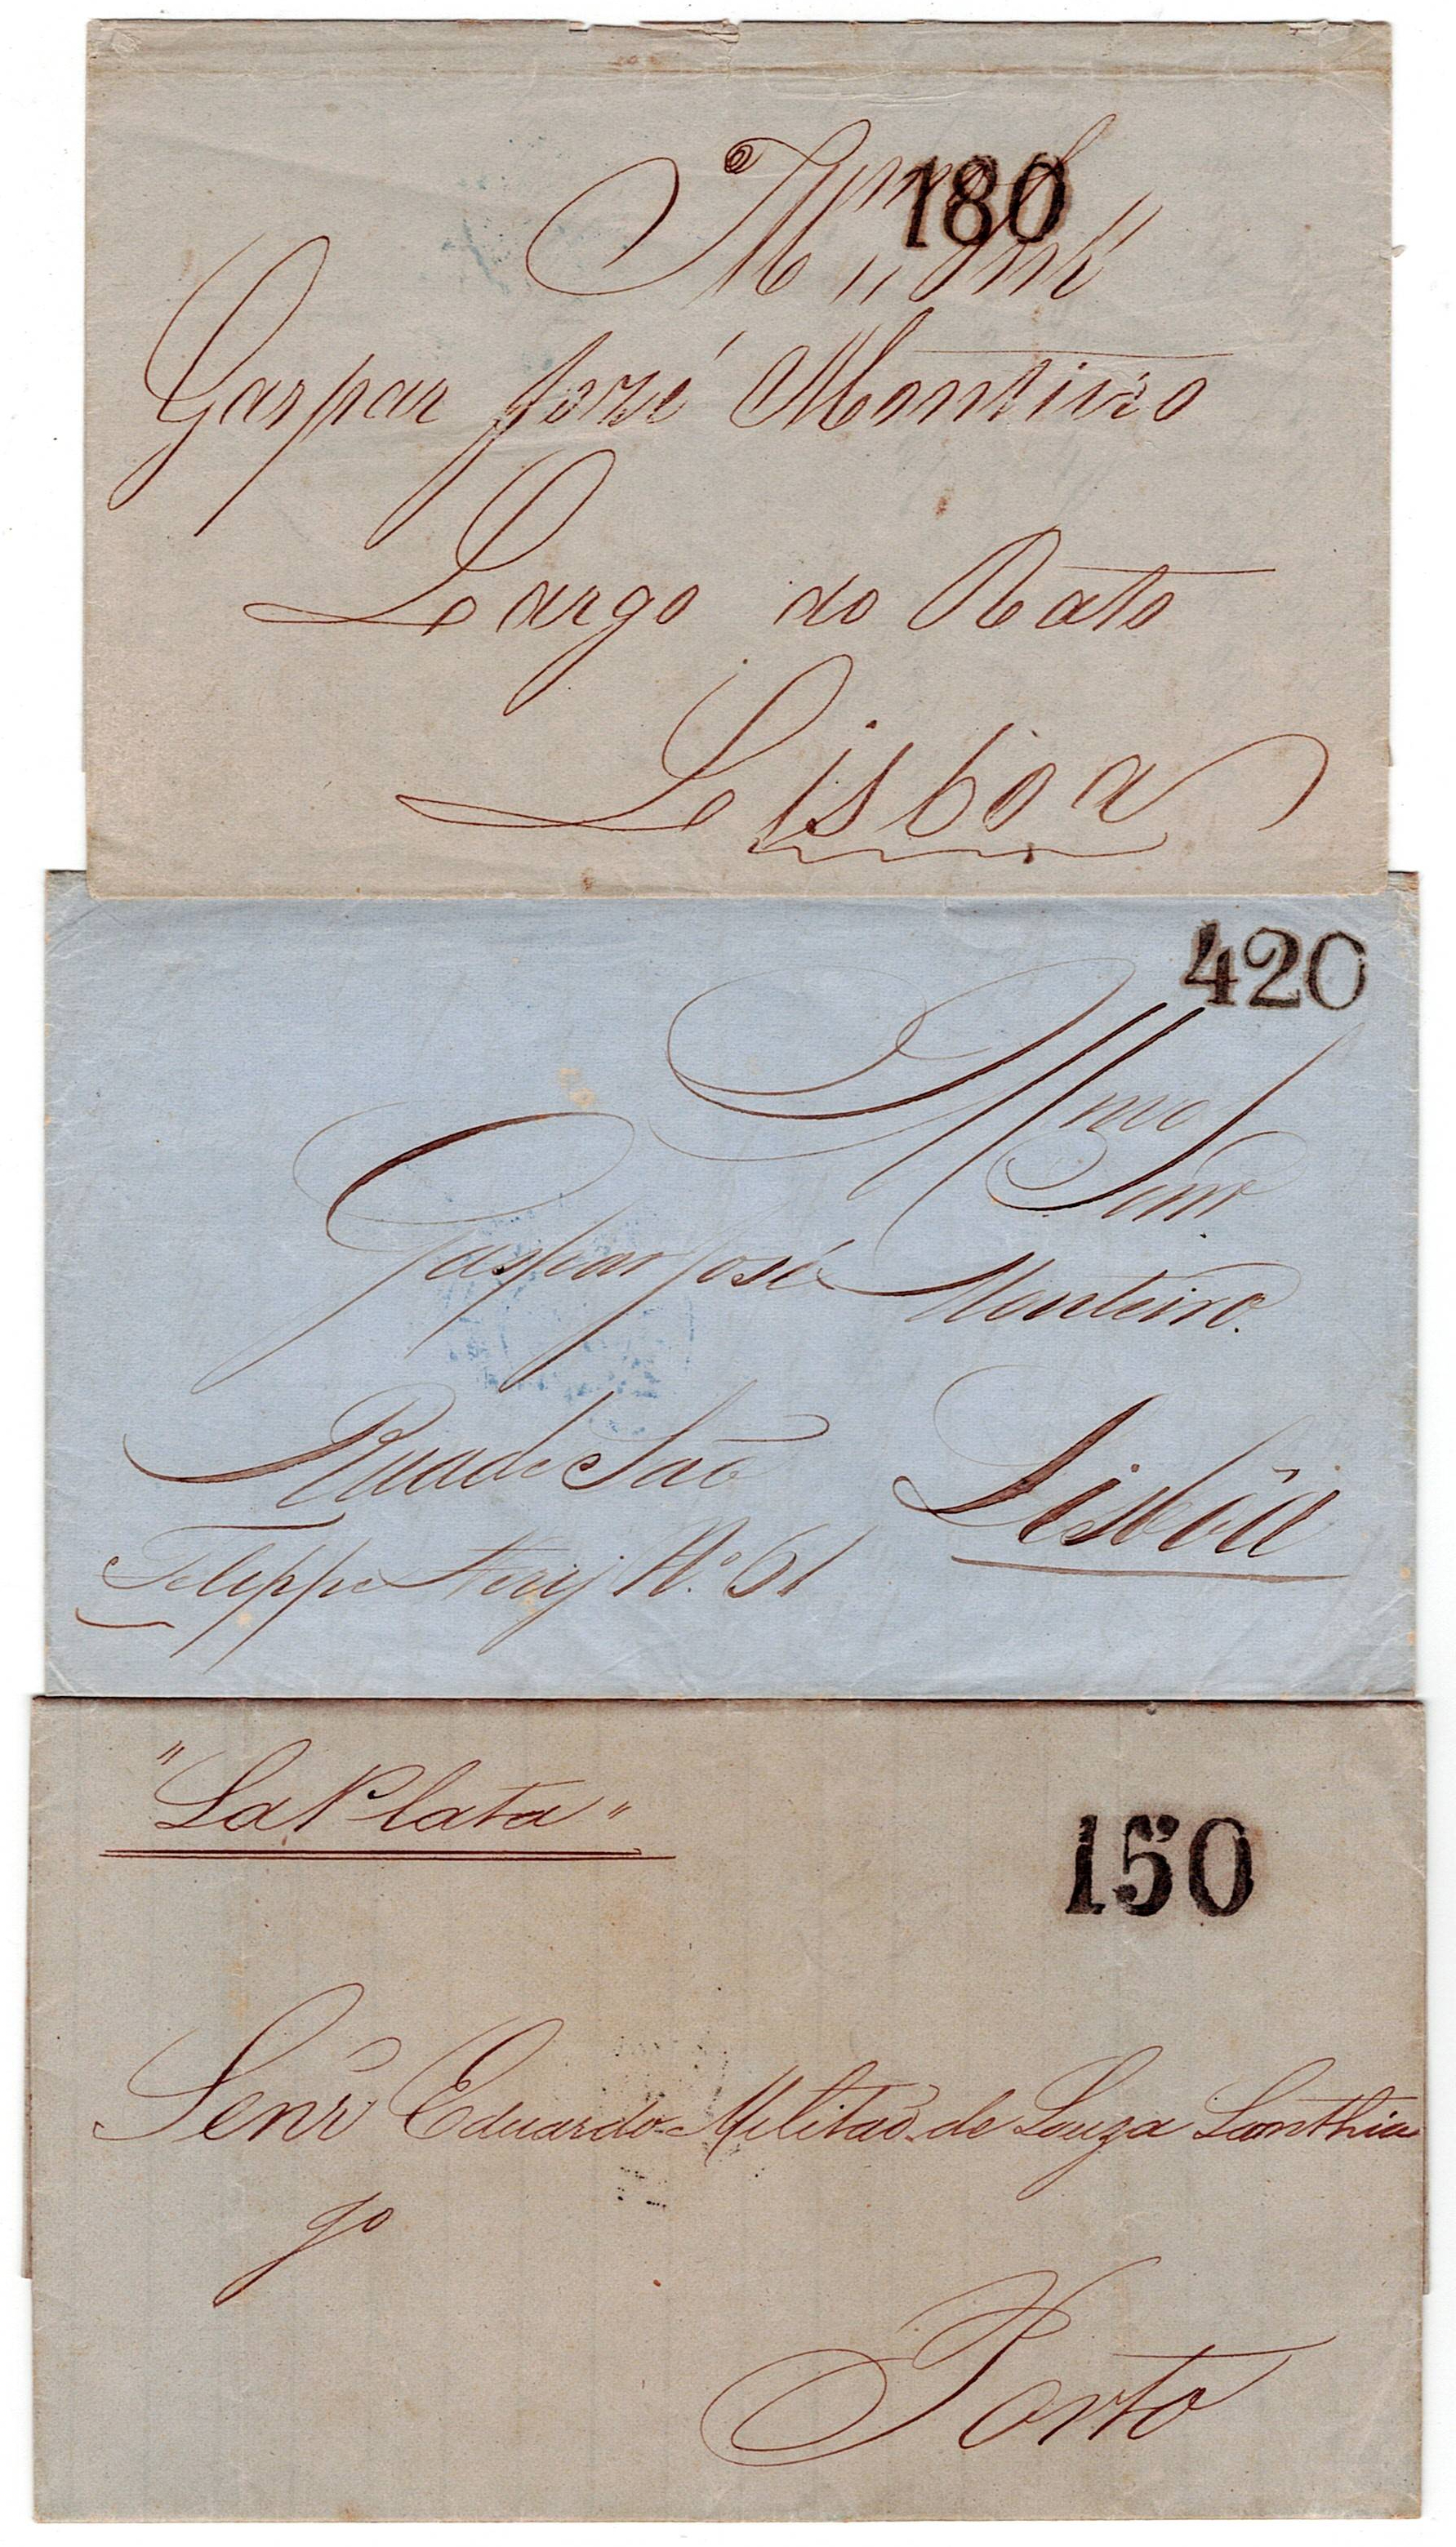 180
Illmo Snr
Gaspar José Monteiro
Largo do Rato
Lisboa
420
Illmo
Senr
Gaspar José Monteiro.
Rua de São
Lisbôa
Felippe Nery N.º 61
"La Plata"
150
Senr Eduardo Militaõ de Souza Santhia
go
Porto